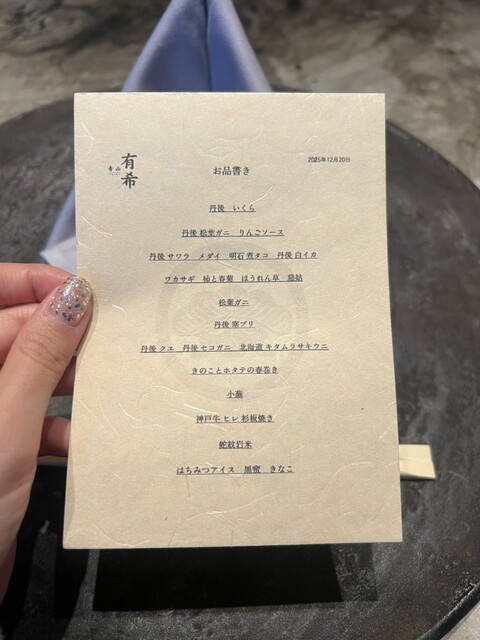 有希
青山
2025年12月20日
お品書き
丹後　いくら
丹後 松葉ガニ　りんごソース
丹後 サワラ　メダイ　明石 煮タコ　丹後 白イカ
ワカサギ　柿と春菊　ほうれん草
松葉ガニ
丹後 寒ブリ
丹後 クエ　丹後 セコガニ　北海道 キタムラサキウニ
きのことホタテの春巻き
小蕪
神戸牛 ヒレ 杉板焼き
蛇紋岩米
はちみつアイス　黒蜜　きなこ